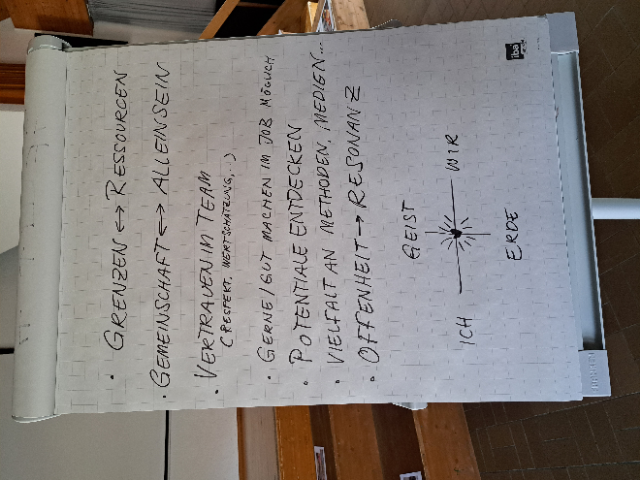 • GRENZEN ↔ RESSOURCEN
• GEMEINSCHAFT ↔ ALLEINSEIN
• VERTRAUEN IM TEAM
(RESPEKT, WERTSCHÄTZUNG, ..)
• GERNE/GUT MACHEN IM JOB MÖGLICH
• POTENTIALE ENTDECKEN
• VIELFALT AN METHODEN, MEDIEN...
• OFFENHEIT → RESONANZ
GEIST
ICH WIR
ERDE
jba